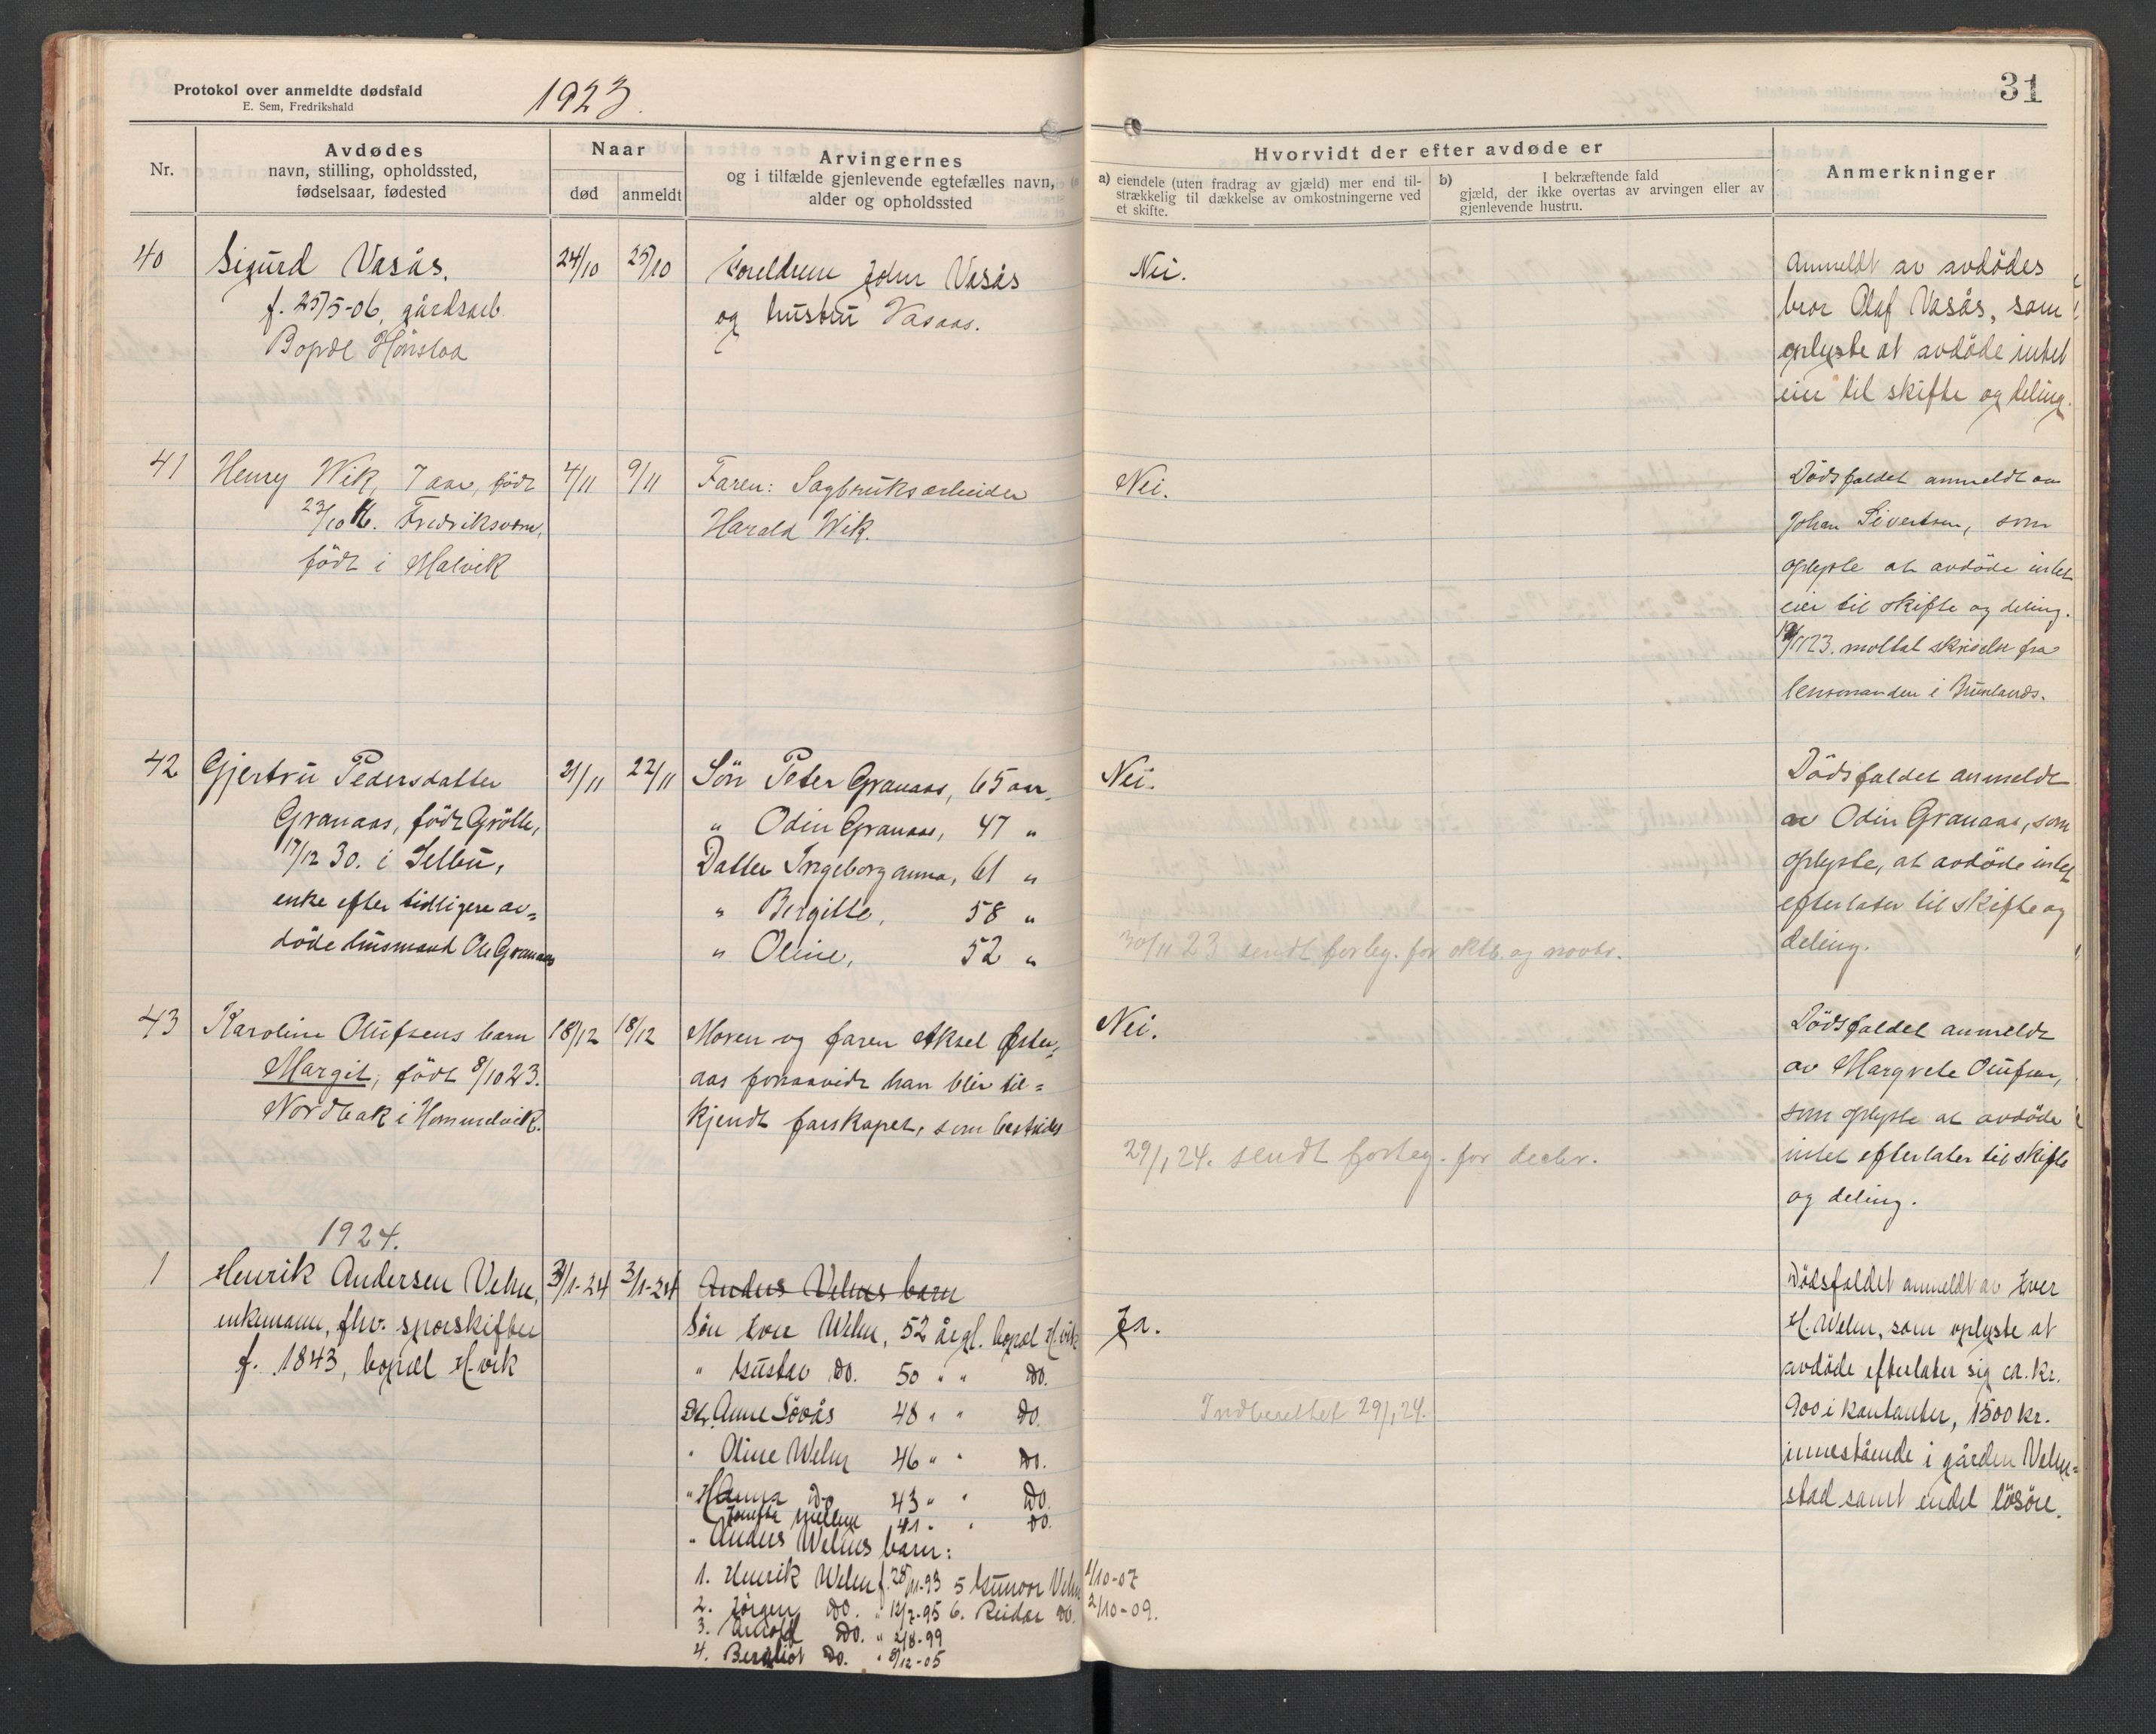 Protokol over anmeldte dødsfald
E. Sem, Fredrikshald
1923.
31
Nr.
Avdødes
navn, stilling, opholdssted,
fødselsaar, fødested
Naar
død
anmeldt
Arvingernes
og i tilfælde gjenlevende egtefælles navn,
alder og opholdssted
Hvorvidt der efter avdøde er
a) eiendele (uten fradrag av gjæld) mer end til-
strækkelig til dækkelse av omkostningerne ved
et skifte.
b) I bekræftende fald
gjæld, der ikke overtas av arvingen eller av
gjenlevende hustru.
Anmerkninger
40
Sigurd Vasås.
f. 25/5-06, gårdsarb.
Bopæl
24/10
25/10
Foreldrene John Vasås
og hustru Vasaas.
Nei.
Anmeldt av avdødes
bror Olaf Vasås, som
oplyste at avdøde intet
eier til skifte og deling.
41
Henry Wik, 7 aar, født
23/10 16. Fredriksværn,
født i Malvik
4/11
9/11
Faren: Sagbruksarbeider
Harald Wik.
Nei.
Dødsfaldet anmeldt av
Johan Sivertsen, som
oplyste at avdøde intet
eier til skifte og deling.
/11 23. mottat skrivelse fra
lensmanden i Brunlanes.
42
Gjertru Pedersdatter
Granaas, født Grøtte,
17/12 30. i Selbu,
enke efter tidligere av=
døde husmand Ole Granaas
21/11
22/11
Søn Peter Granaas, 65 aar.
" Odin Granaas, 47 "
Datter Ingeborganna, 61 "
" Bergitte, 58 "
" Oline, 52 "
Nei.
30/11 23 sendt forteg. for oktb. og novbr.
Dødsfaldet anmeldt
av Odin Granaas, som
oplyste, at avdøde intet
efterlater til skifte og
deling.
43
Karoline Olufsens barn
Margit, født 8/10 23.
Nordbak i Hommelvik.
18/12
18/12
Moren og faren Aksel Øster=
aas forsaavidt han blir til=
kjendt farskapet, som bestrides
Nei.
29/1 24. sendt forteg. for decbr.
Dødsfaldet anmeldt
av Margrete Olufsen,
som oplyste at avdøde
intet efterlater til skifte
og deling.
1924.
1
Henrik Andersen Velve,
enkemann, fhv. sporskifter
f. 1843, bopæl H.vik
3/1-24
3/1-24
Anders Velves barn
Søn Iver Welve, 52 årgl. bopæl H.vik
" Gustav do. 50 " " do.
Dt. Anne Søvås 48 " " do.
" Oline Welve 46 " " do.
" Hanna do 43 " " do.
41 " " do.
" Anders Welves barn:
1. Henrik Welve f. 28/11-93 5 Gunvor Velve 1/10-07
2. Jørgen do. " 12/7-95 6. Reidar do. 2/10-09.
3. Arnold do. " 2/8-99
4. Bergliot do. " 8/12-05
Ja.
Indberettet 29/1 24.
Dødsfaldet anmeldt av Iver
H. Welve, som oplyste at
avdøde efterlater sig ca. kr.
900 i kontanter, 1500 kr.
innestående i gården Velve=
stad samt endel løsøre.